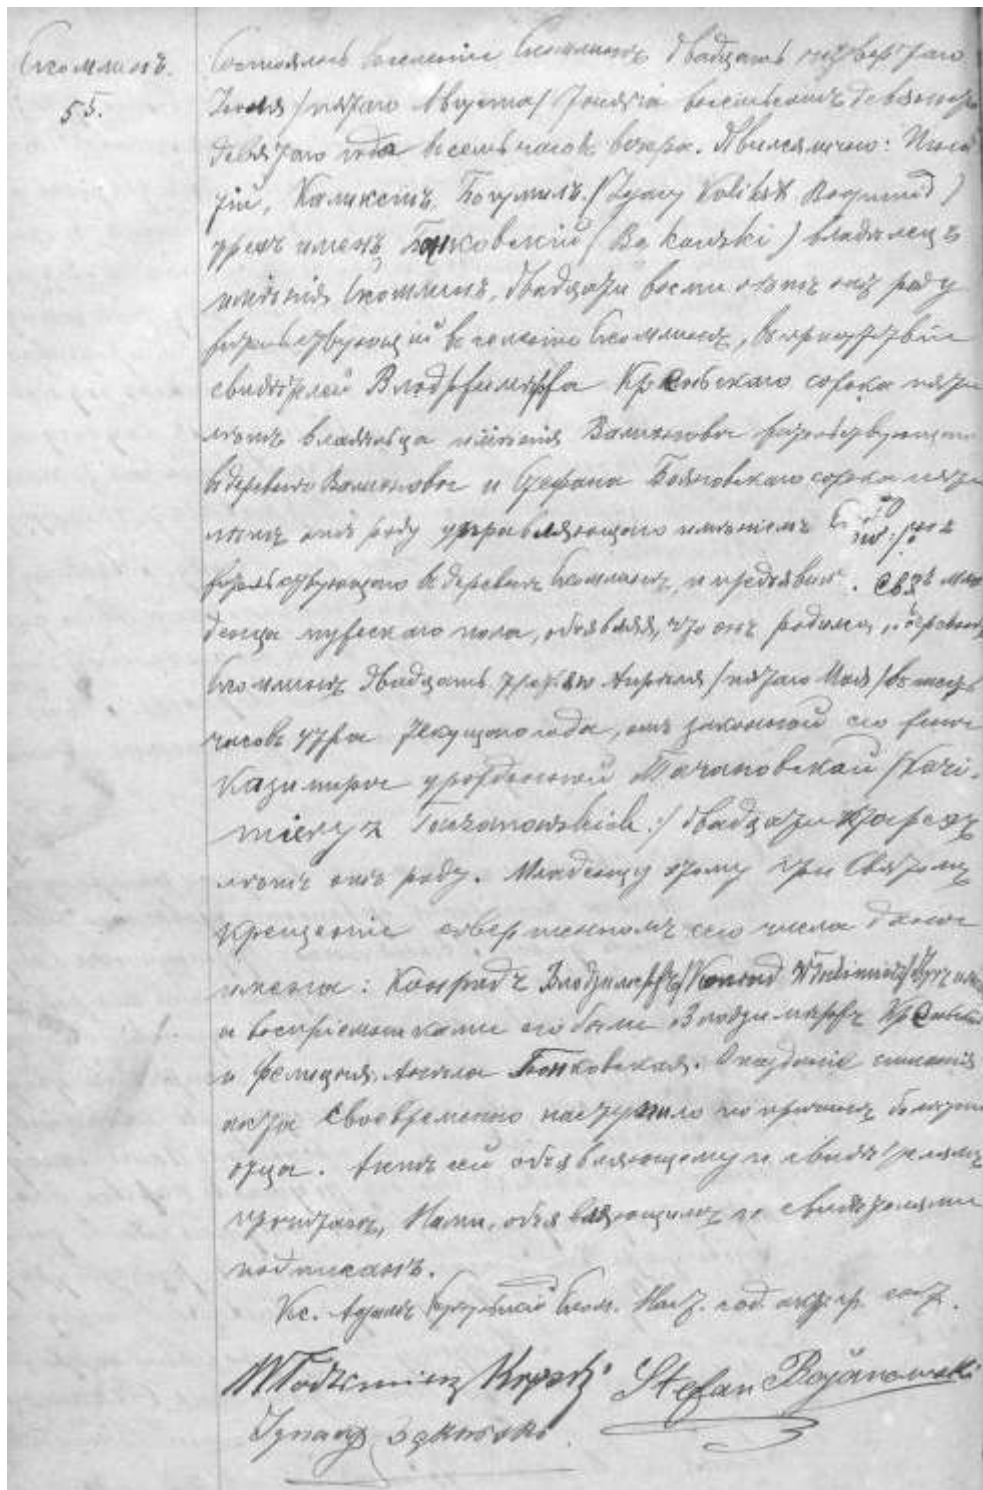 Скомлинъ.
55.
Состоялось въ селеніи Скомлинъ двадцать четвертаго
Іюля /пятаго Августа/ тысяча восемьсотъ девяносто
девятаго года въ семь часовъ вечера. Явился лично: Игна-
тій, Каликстъ, Богумилъ (Ignacy Kalikst Bogumił)
трехъ именъ Бонковскій (Bąkowski) владѣлецъ
имѣнія Скомлинъ, двадцати восьми лѣтъ отъ роду
жительствующій въ селеніи Скомлинъ, въ присутствіи
свидѣтелей Влодзимержа сорока пяти
лѣтъ владѣльца имѣнія жительствующаго
въ деревнѣ и Стефана Бояновскаго сорока пяти
лѣтъ отъ роду управляющаго имѣніемъ
жительствующаго въ деревнѣ Скомлинъ, и предъявилъ мла-
денца мужескаго пола, объявляя, что онъ родился деревнѣ
Скомлинъ двадцать третьяго Апрѣля /пятаго Мая/ въ шесть
часовъ утра текущаго года, отъ законной его жены
Казимиры урожденной Тачановской /Kazi-
miery z Taczanowskich./ двадцати трехъ
лѣтъ отъ роду. Младенцу этому при Святомъ
Крещеніи совершенномъ сего числа даны
имена: Конрадъ Влодзимержъ /Konrad Włodzimierz/ двухъ именъ
а воспріемниками его были Влодзимержъ
и Фелиція, Анѣла Бонковская. Опозданіе составленія
акта своевременно наступило по причинѣ болѣзни
отца. Актъ сей объявляющему и свидѣтелямъ
прочитанъ, Нами, объявляющимъ и свидѣтелями
подписанъ.
Кс. Адамъ Ском. Наст. сод. акт. гр. сост.
Włodzimierz Stefan Bojanowski
Ignacy Bąkowski